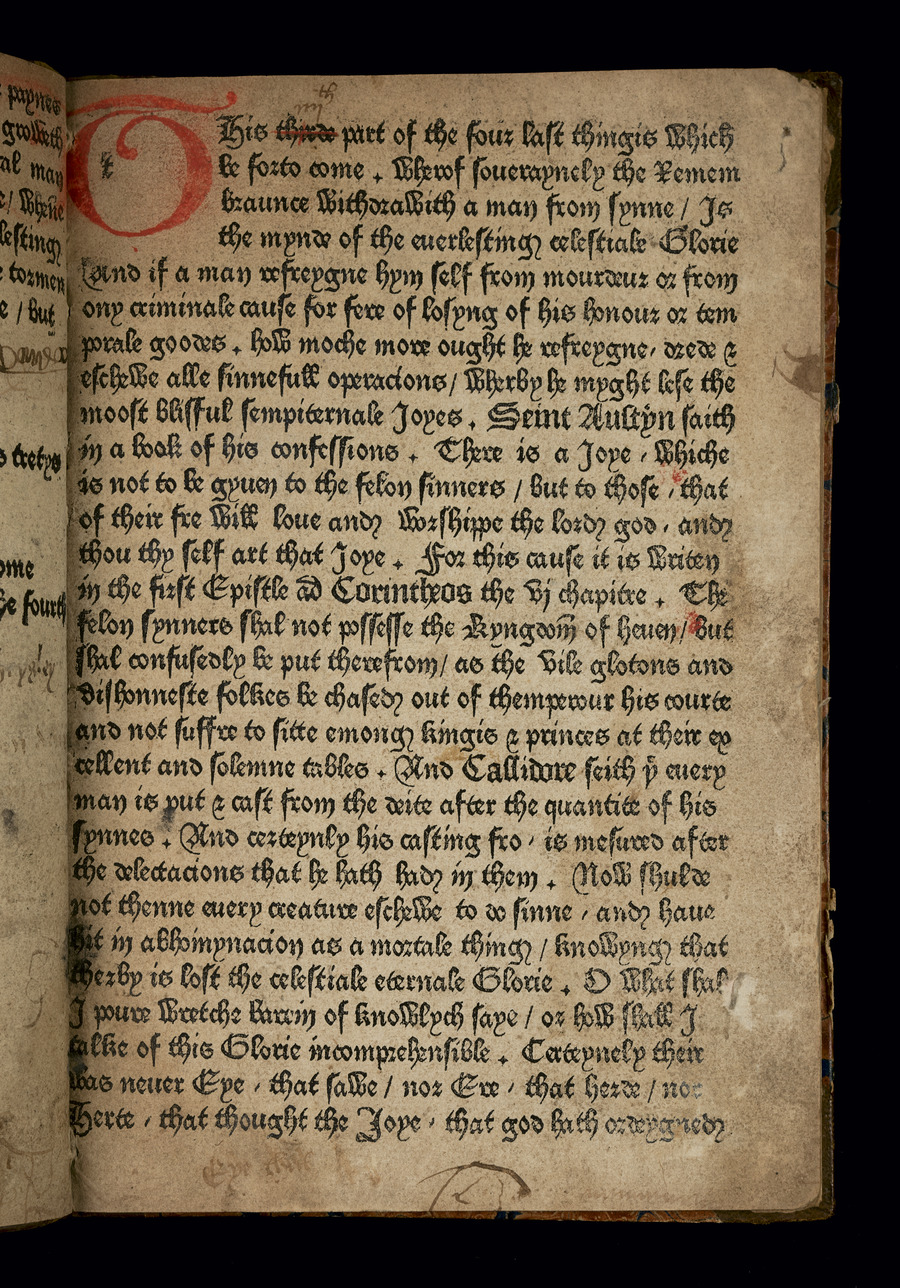 paynes
growith
al may
/ Whene
lesting
tormen
e / but
tretys
ome
e fourth
iiii th
THis thirde part of the four last thingis Which
be forto come . Wherof souueraynely the Remem
braunce WithdraWith a man from synne / Is
the mynde of the euerlesting celestiale Glorie
And if a man refreygne hym self from mourdeur or from
ony criminale cause for fere of losyng of his honour or tem
porale goodes . hoW moche more ought he refreygne, drede &
escheWe alle sinnefull operacions / Wherby he myght lese the
moost blisful sempiternale Joyes . Seint Austyn saith
in a book of his confessions . There is a Joye , Whiche
is not to be gyuen to the felon sinners / but to those , that
of their fre Will loue and Worshippe the lord god , and
thou thy self art that Joye . For this cause it is Writen
in the first Epistle ad Corintheos the vj chapitre . The
felon synners shal not possesse the Kyngdom̄ of heuen / But
shal confusedly be put therefrom / as the vile glotons and
dishonneste folkes be chased out of themperour his courte
and not suffre to sitte emong kingis & princes at their ex
cellent and solemne tables . And Callidore seith yͭ euery
man is put & cast from the deite after the quantite of his
synnes . And certeynly his casting fro , is mesured after
the delectacions that he hath had in them . NoW shulde
not thenne euery creature escheWe to do sinne , and haue
hit in abhomynacion as a mortale thing / knoWyng that
therby is lost the celestiale eternale Glorie . O What shal
I poure Wretche barein of knoWlych saye / or hoW shall I
talke of this Glorie incomprehensible . Certeynely their
Was neuer Eye , that saWe / nor Ere , that herde / nor
Herte , that thought the Joye , that god hath ordeygned